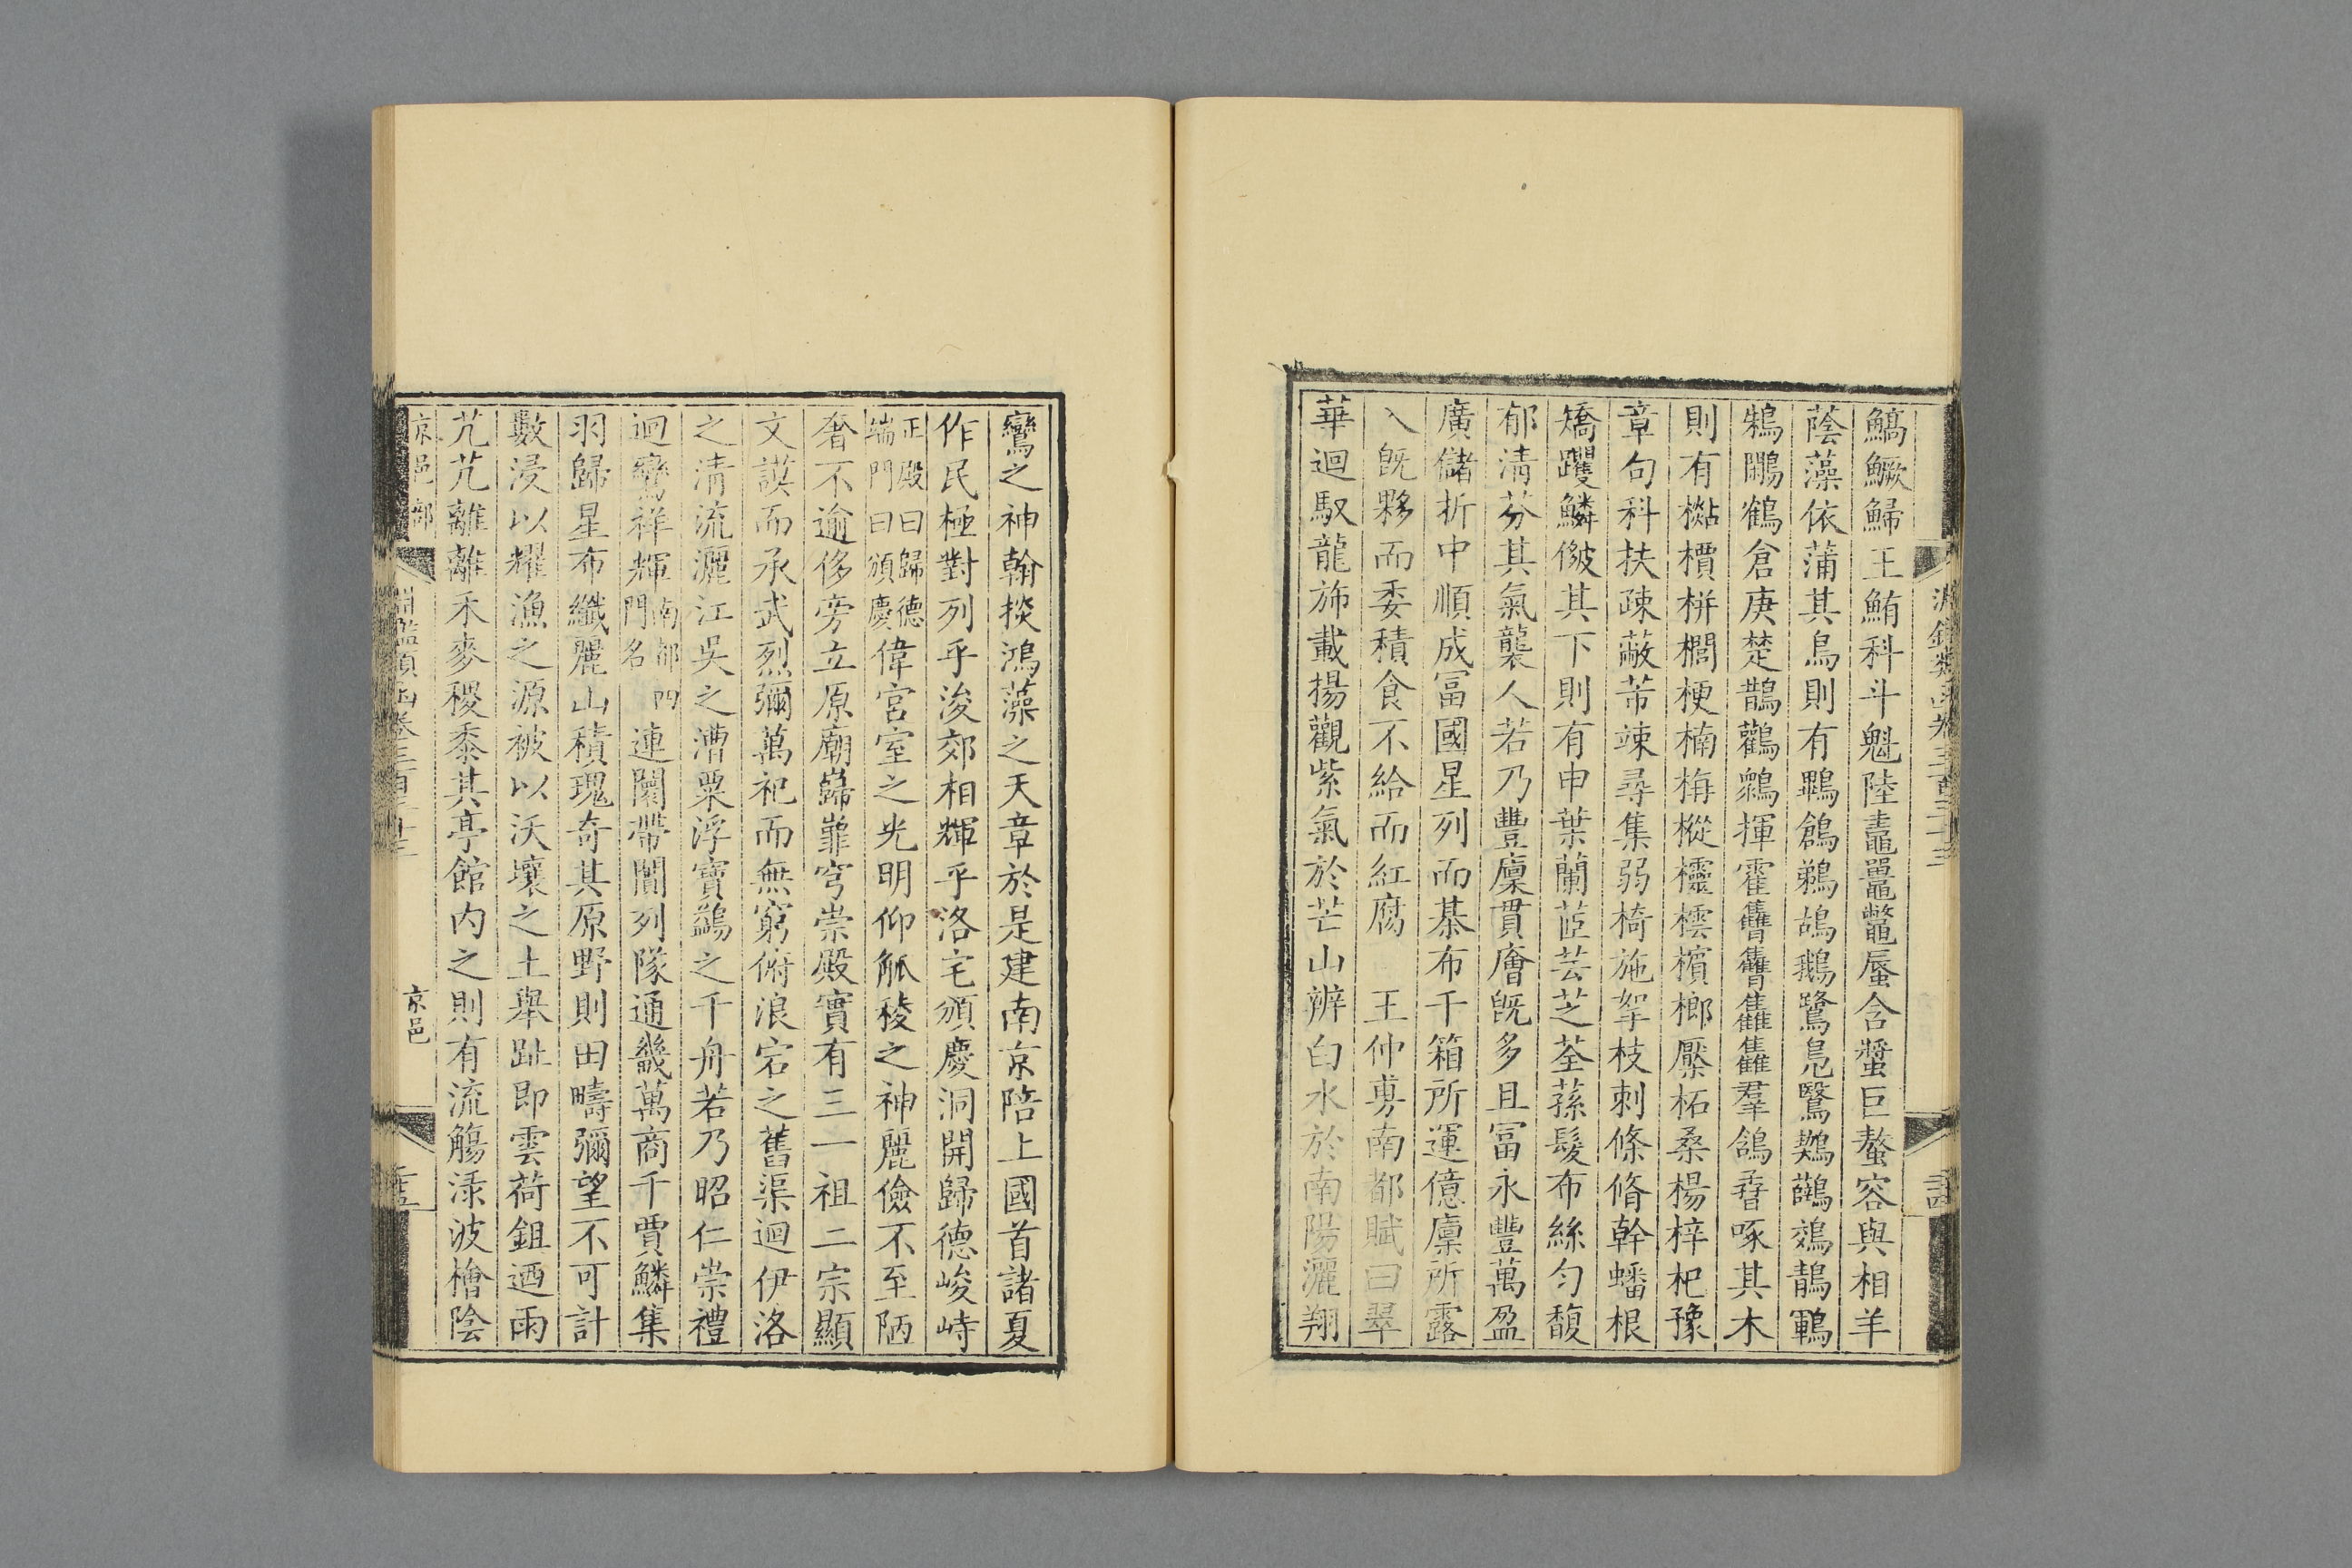 鰝鱖鯞王鮪科斗魁陸鼃黽鼈蜃含蠯巨螯容與相羊
蔭藻依蒲其鳥則有鸅鶬鵜鴣鵝鷺鳧鷖鷄䴏鵁鶄鶤
鵷鷳鶴倉庚楚鵲鸛鷞揮霍羣鴿䎙啄其木
則有樅檟栟櫚楩楠栴樅櫺橒檳榔檿柘桑楊梓杞豫
章句科扶疎蔽芾竦尋集弱椅施挐枝刺條脩幹蟠根
矯躩鱗皴其下則有申葉蘭茝芸芝荃蓀髮布絲匀馥
郁清芬其氣襲人若乃豐廪貫廥旣多且冨永豐萬盈
廣儲折中順成冨國星列而棊布千箱所運億廪所露
入旣夥而委積食不給而紅腐 王仲旉南都賦曰翠
華迴馭龍斾載揚觀紫氣於芒山辨白水於南陽灑翔
鸞之神翰掞鴻藻之天章於是建南京陪上國首諸夏
作民極對列乎浚郊相輝乎洛宅頒慶洞開歸德峻峙
正殿曰歸德端門曰頒慶偉宮室之光明仰觚稜之神麗儉不至陋
奢不逾侈旁立原廟巋嶵穹崇殿實有三一祖二宗顯
文謨而承武烈彌萬祀而無窮俯浪宕之舊渠迴伊洛
之清流灑江吳之漕粟浮寶鷁之千舟若乃昭仁崇禮
迴鸞祥輝南都四門名連闤帶闠列隊通畿萬商千賈鱗集
羽歸星布纖麗山積瑰奇其原野則田疇彌望不可計
數浸以耀漁之源被以沃壤之土舉趾即雲荷鉏迺雨
芃芃離離禾麥稷黍其亭館内之則有流觴淥波檜陰
京邑部 淵鑑類函卷三百三十三 京邑